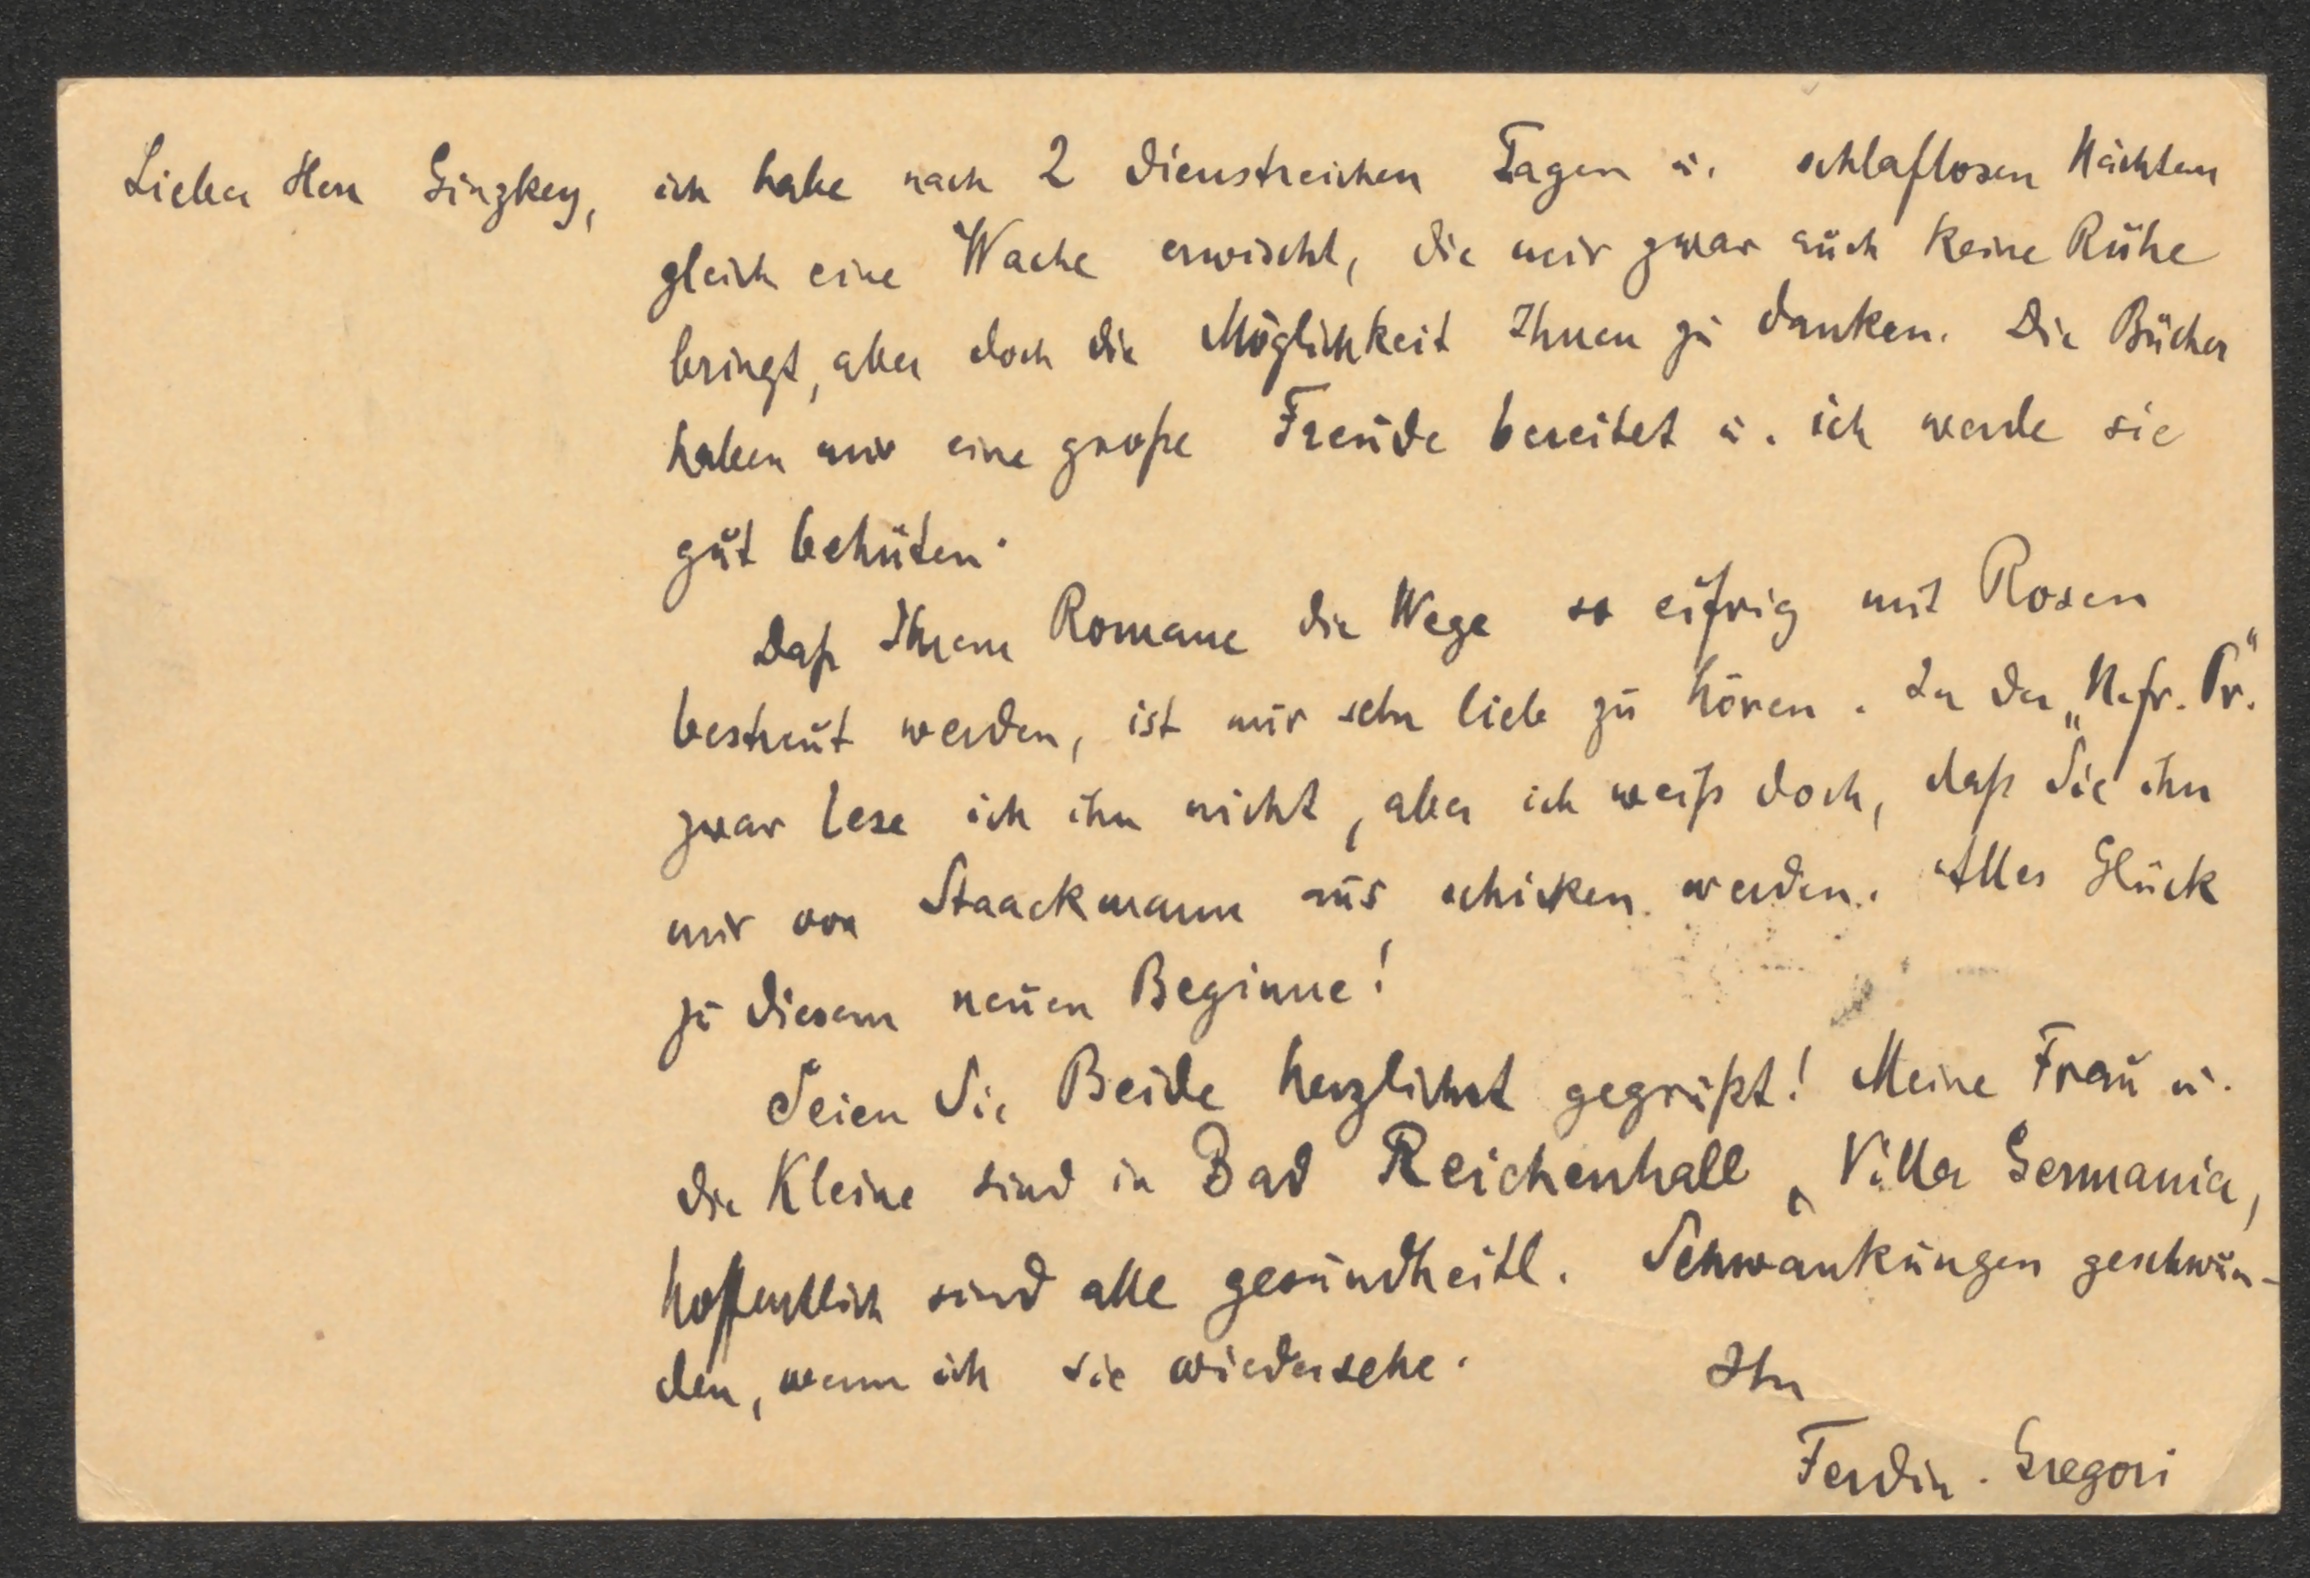 Lieber Herr Ginzkey, ich habe nach 2 dienstreichen Tagen u. schlaflosen Nächten
gleich eine Wache erwischt, die mir zwar auch keine Ruhe
bringt, aber doch die Möglichkeit Ihnen zu danken. Die Bücher
haben mir eine große Freude bereitet u. ich werde sie
gut behüten.
Daß Ihrem Romane die Wege so eifrig mit Rosen
bestreut werden, ist mir sehr lieb zu hören. In der „N. fr. Pr.“
zwar lese ich ihn nicht, aber ich weiß doch, daß Sie ihn
mir von Staackmann aus schicken werden. Alles Glück
zu diesem neuen Beginne!
Seien Sie Beide herzlichst gegrüßt! Meine Frau u.
die Kleine sind in Bad Reichenhall, Villa Germania,
hoffentlich sind alle gesundheitl. Schwankungen geschwun-
den, wenn ich sie wiedersehe. Ihr
Ferdin. Gregori